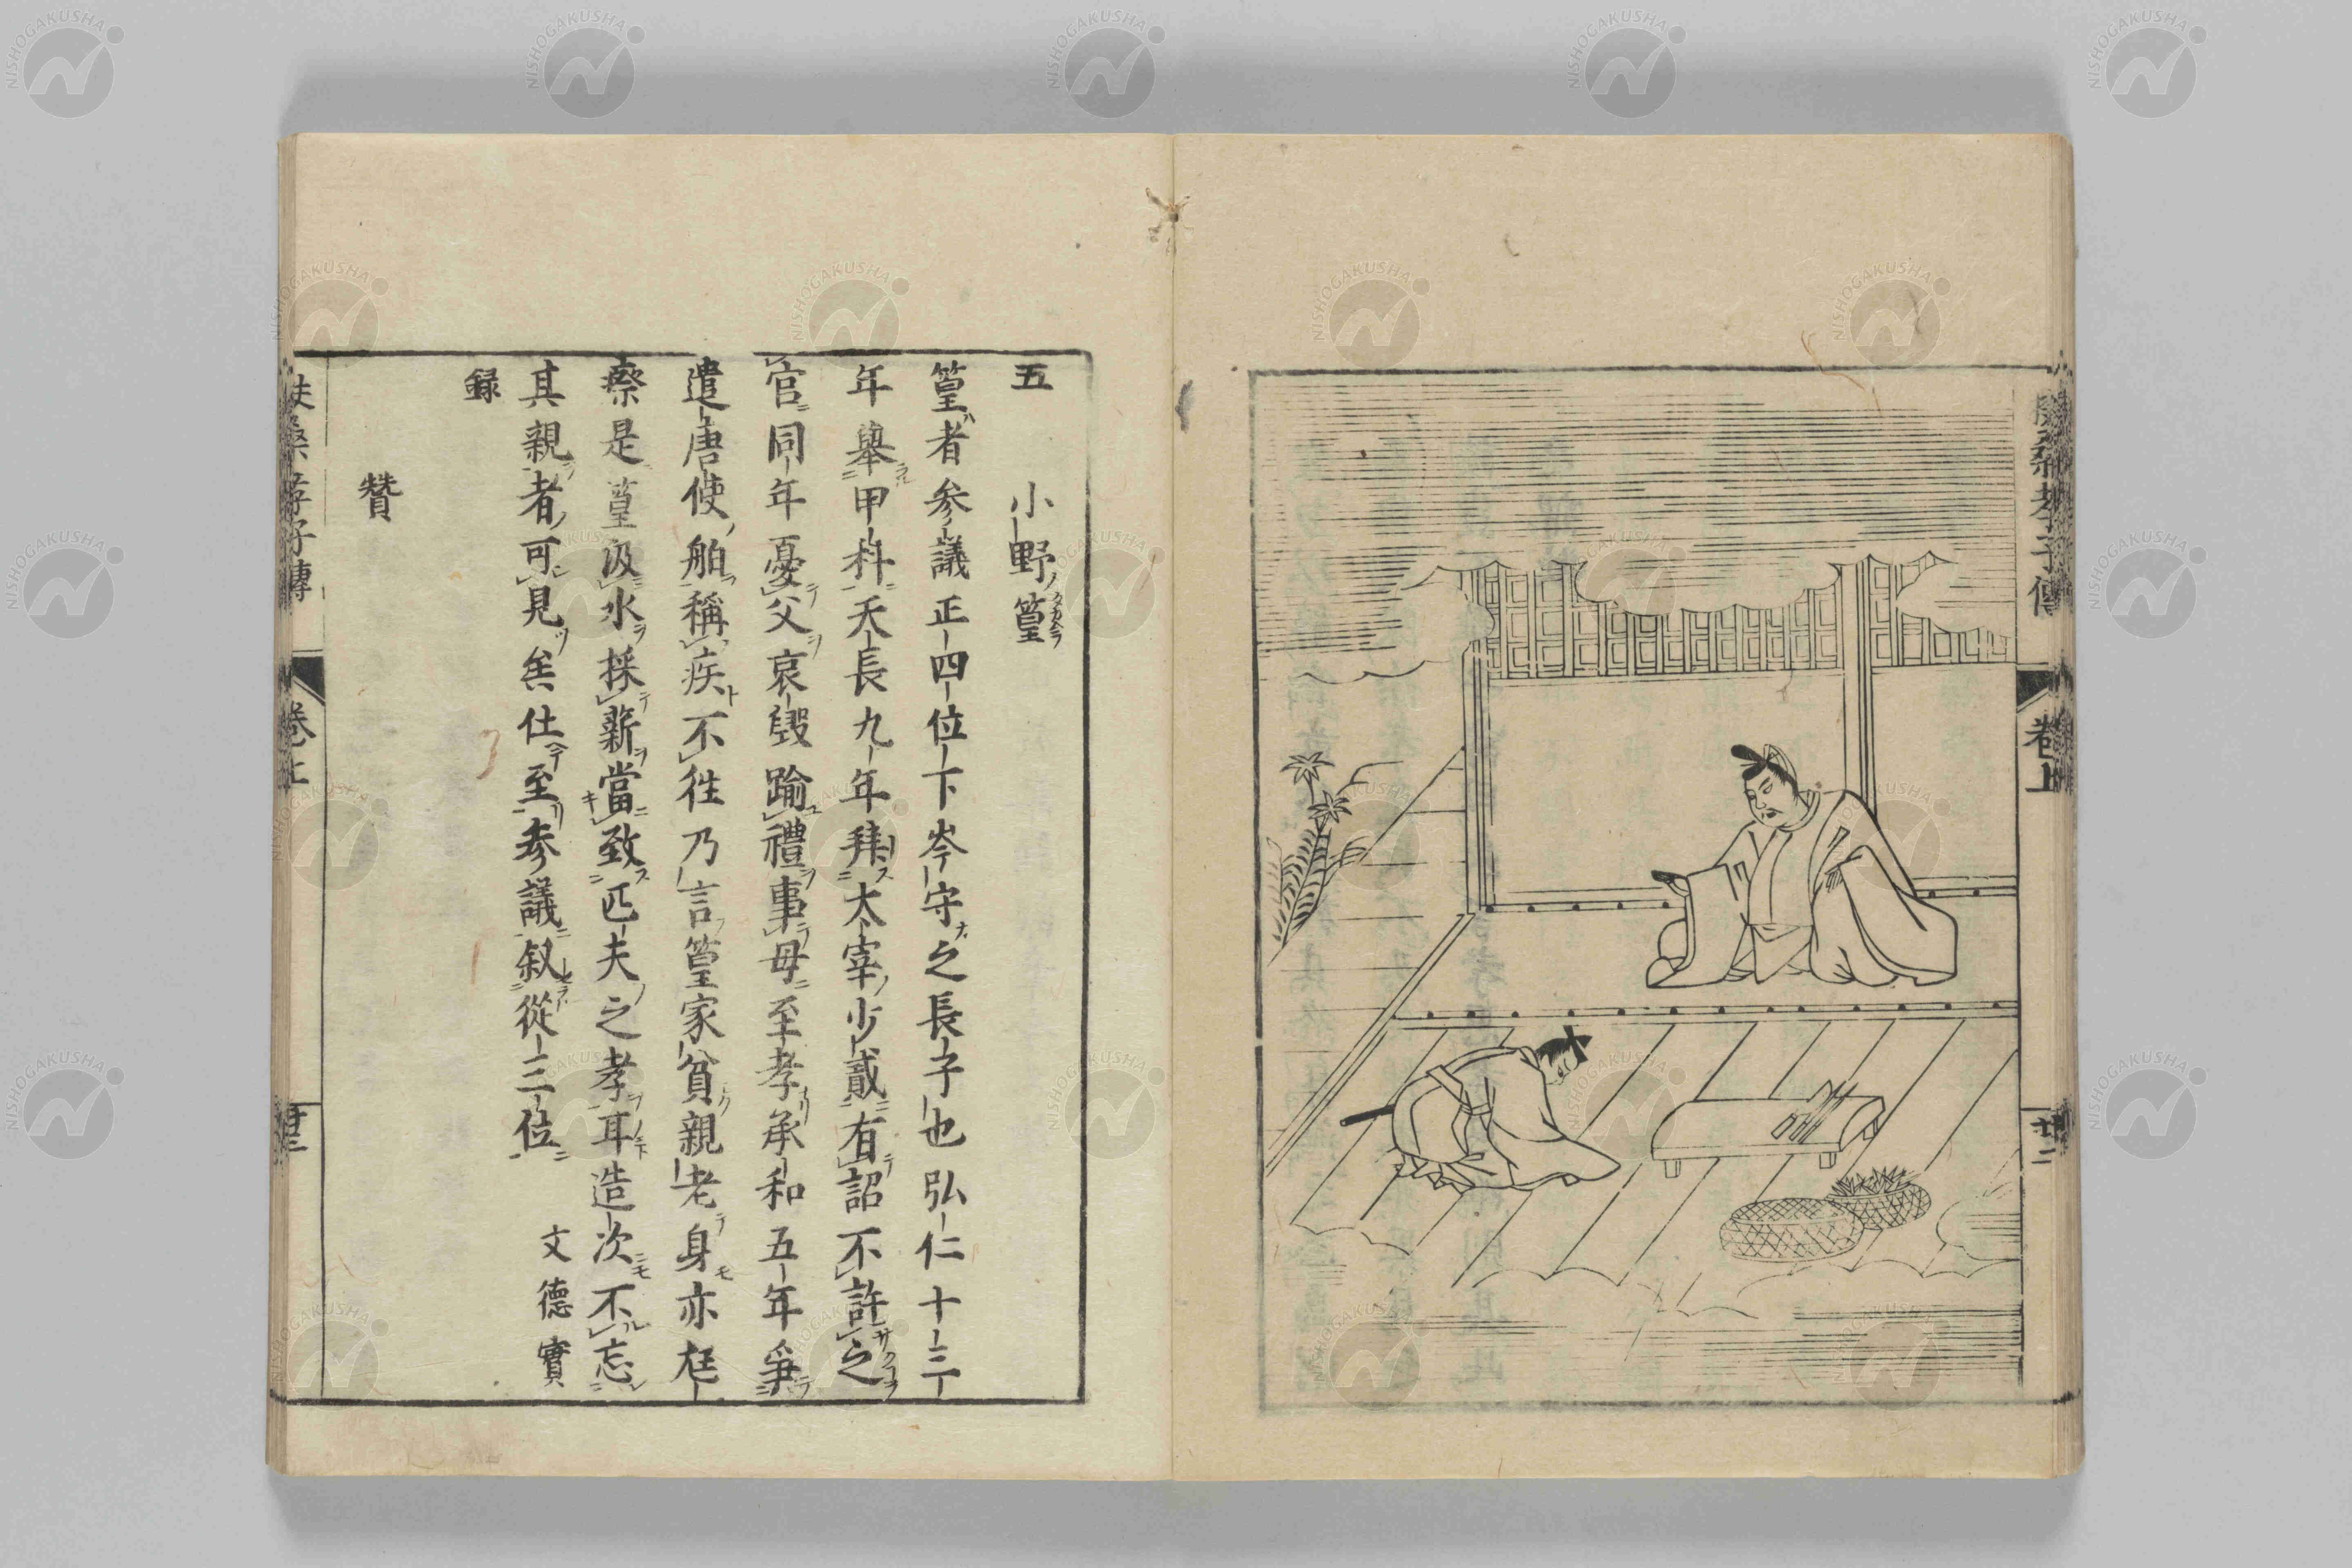 扶桑孝子傳
卷上
廿二
五 小野篁
篁者參議正四位下岑守之長子也弘仁十三
年舉甲科天長九年拜太宰少貳有詔不許之
官同年憂父哀毀踰禮事母至孝承和五年爭
遣唐使舶稱疾不徃乃言篁家貧親老身亦尫
瘵是篁汲水採薪當致匹夫之孝耳造次不忘
其親者可見矣仕至參議叙從三位 文德實
録
贊
扶桑孝子傳
卷上
NISHOGAKUSHA